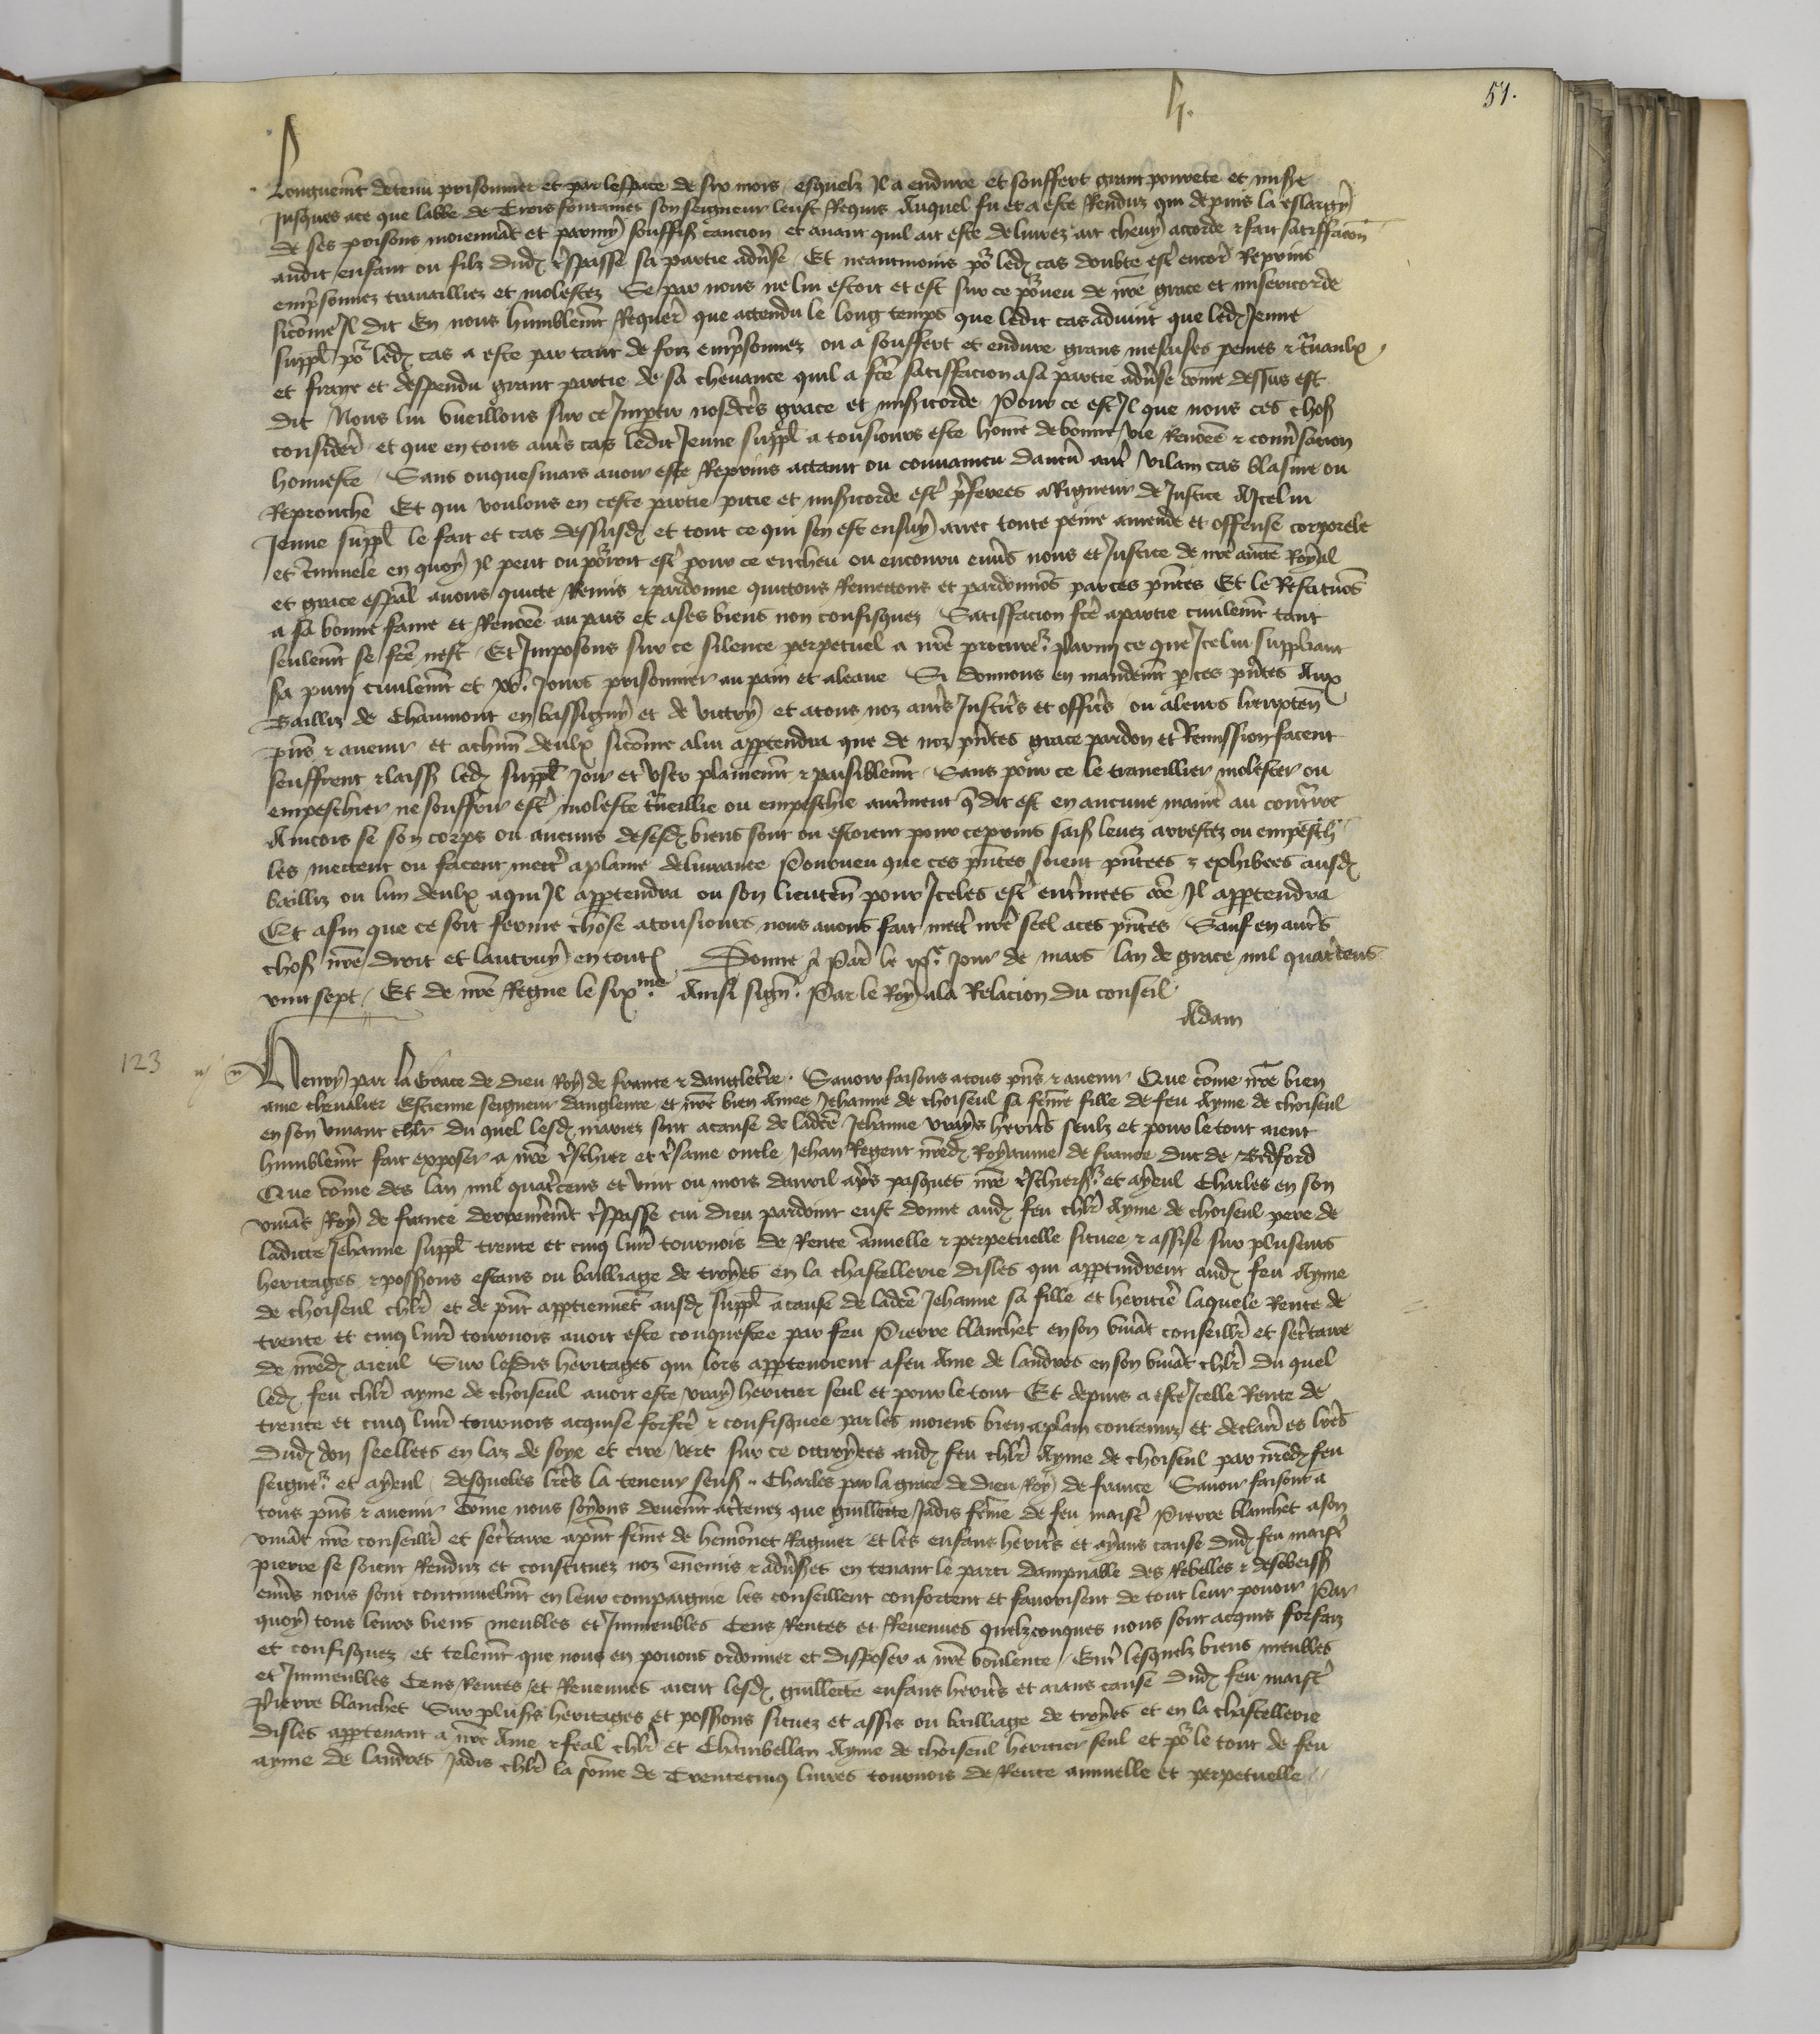 h.
57.
Longuemẽt detenu prisonnier et par lespace de six mois esquelz Il a endure et souffert grant pourete et mise
Jusques ace que labbe de Trois fontaines son seigneur leust Requis Auquel fu et a este Renduz qui depuis la eslargy
de ses prisons moiennãt et parmy souffis caucion et auant quil ait este deliurez ait cheuy accorde & fait satiffacõn
audit enfant ou filz dudz tspasse sa partie aduse Et neantmoins pour ledz cas doubte est encor Reprins
emprisonnez trauailliez et molestez Se par nous ne lui estoit et est sur ce pourueu de nre grace et misericorde
sicõme Il dit En nous humblemẽt Requer que attendu le long temps que ledit cas aduint que ledz Jenne
suppl por ledz cas a este par tant de foiz emprisonnez ou a souffert et endure grans mesaises peines & trauaulx
et fraye et despendu grant partie de sa cheuance quil a fcẽ satiffacion asa partie aduse cõme dessus est
dit Nous lui vueillons sur ce Impartir nosdctes grace et misericorde Pour ce est Il que nous ces chos
consider et que en tous autres cas ledit Jenne suppl a tousiours este hõme de bonne vie Renõmee & conuersacion
honneste Sans onquesmais auoir este Reprins attaint ou conuaincu daucũ autre vilain cas blasme ou
Reprouche Et qui voulons en ceste partie pitie et misericorde estre preferees a Rigueur de Justice A Icelui
Jenne suppl le fait et cas dessusdz et tout ce qui sen est ensuy auec toute peine amende et offense corporele
et criminele en quoy Il peut ou pourroit estre pour ce encheu ou encouru enuers nous et Justice de nre aucte Royal
et grace especial auons quicte Remis & pardonne quictons Remettons et pardonnõs par ces pñtes Et le Restituõs
a sa bonne fame et Renõmee au pais et ases biens non confisquez Satiffacion fcẽ apartie ciuilemẽt tant
seulemẽt se fcẽ nest Et Imposons sur ce silence perpetuel a nre procureur parmi ce que Icelui suppliant
sa puni ciuilemẽt et xv Jours prisonnier au pain et aleaue Si donnons en mandemẽt p ces pñtes Aux
Bailliz de Chaumont en bassigny et de vitry et atous noz autres Justicrs et officrs ou aleurs lieuxten
pñs & auenir et achun deulx sicõme alui appartendra que de noz pñtes grace pardon et Remission facent
seuffrent & laiss ledz suppl Joir et vser plainemẽt & paisiblemẽt Sans pour ce le traueillier molester ou
empeschier ne souffrir estre moleste traueillie ou empeschie autrement q dit est en aucune maniere au contraire
Aincois se son corps ou aucuns desesdz biens sont ou estoient pour ce prins saisiz leuez arrestez ou empesch
les mettent ou facent mettre aplaine deliurance Pourueu que ces pñtes soient pñtees & exhibees ausdz
bailliz ou lun deulx aqui Il appartendra ou son lieuten pour Iceles estre enterinees cõe Il appartendra
Et afin que ce soit ferme chose atousiours nous auons fait mettre nre seel aces pñtes Sauf en autres
chos nre droit et lautruy en toutes Donne a Paris le Jour de mars lan de grace mil quatrecens
vint sept Et de nre Regne le sixme Ainsi signe Par le Roy ala Relacion du conseil
Adam
123
Henry par la Grace de dieu Roy de france & dangleterre Sauoir faisons atous pñs & auenir Que cõme nre bien
ame cheualier Estienne seigneur danglure et nre bien Amee Jehanne de choiseul sa femme fille de feu Ayme de choiseul
en son viuant chlr du quel lesdz mariez sont acause de ladcte Jehanne vrayes heritiers seulz et pour le tout aient
humblemẽt fait exposer a nre trschier et trsame oncle Jehan Regent nredz Royaume de france duc de Bedford
Que cõme des lan mil quatrecens et vint ou mois dauril apres pasques nre trschiersr et ayeul Charles en son
viuãt Roy de france derrenieremẽt trespasse cui dieu pardoint eust donne audz feu chlr Ayme de choiseul pere de
ladicte Jehanne suppl trente et cinq liures tournois de Rente annuelle & perpetuelle situee & assise sur pluseurs
heritages & possessions estans ou bailliage de troyes en la chastellerie disles qui appartindrent audz feu Ayme
de choiseul chlr et de pñt appartiennent ausdz suppl acause de ladcte Jehanne sa fille et heritiere laquele Rente de
trente et cinq liures tournois auoit este conquestee par feu Pierre blanchet en son viuãt conseillr et secretaire
de nredz aieul Sur lesdis heritages qui lors appartenoient a feu Ame de landres en son viuãt chlr du quel
ledz feu chlr ayme de choiseul auoit este vray heritier seul et pour le tout Et depuis a este Icelle Rente de
trente et cinq liures tournois acquise forfcẽ & confisquee par les moiens bien aplain contenuz et declairez es lres
dudz don seellees en laz de soye et cire vert sur ce octroyees audz feu chlr Ayme de choiseul par nredz feu
seigneur et ayeul desqueles lres la teneur sensuit Charles par la grace de dieu Roy de france Sauoir faisons a
tous pñs & auenir Cõme nous soyons deuemẽt acertenez que guillecte Jadis femme de feu maistre Pierre blanchet ason
viuãt nre conseillr et secretaire apñt femme de hemonnet Raguier et les enfans heritiers et ayans cause dudz feu maistre
pierre se soient Renduz et constituez noz ennemis & aduersaires en tenant le parti dampnable des Rebelles & desobeiss
enuers nous sont continuelmẽt en leur compaignie les conseillent confortent et fauorisent de tout leur pouoir Par
quoy tous leurs biens meubles et Immeubles Cens Rentes et Reuenues quelzconques nous sont acquis forfaiz
et confisquez et telemẽt que nous en pouons ordonner et disposer a nre voulente Entre lesquelz biens meubles
et Immeubles Cens Rentes et Reuenues aient lesdz guillecte enfans heritiers et aians cause dudz feu maistre
Pierre blanchet Sur plusrs heritages et possessions situez et assis ou bailliage de troyes et en la chastellerie
disles appartenant a nre Ame & feal chlr et Chambellan Ayme de choiseul heritier seul et por le tout de feu
ayme de landres Jadis chlr la sõme de Trentecinq liures tournois de Rente annuelle et perpetuelle